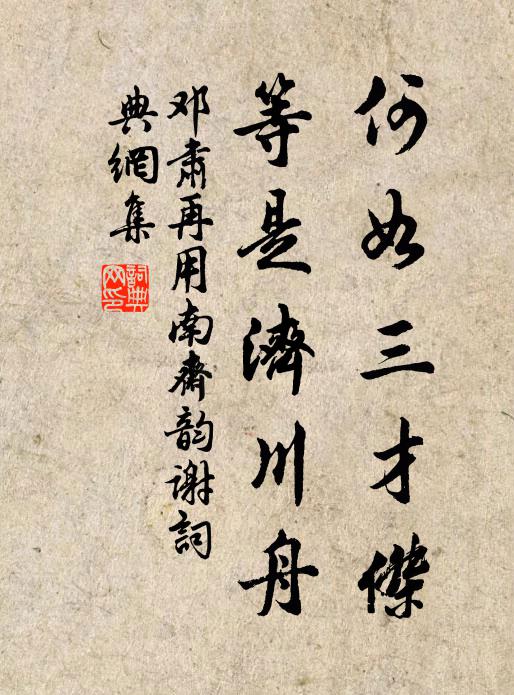 何如三才傑
等是濟川舟
邓肅再用南齋韵谢詞
典網集
詞典網印